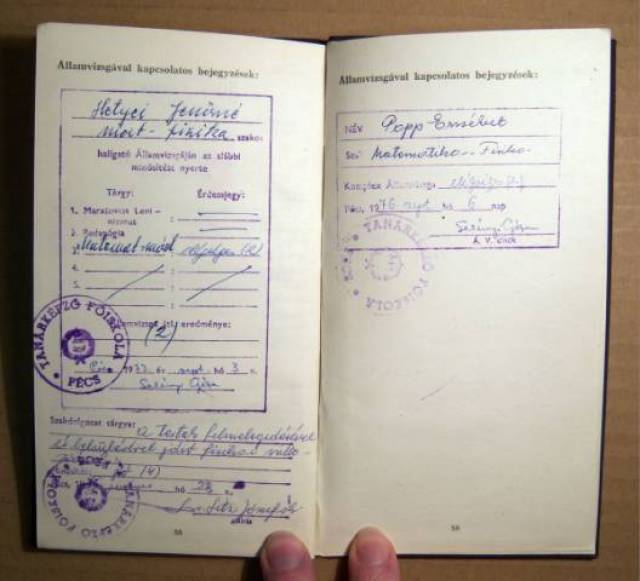 Államvizsgával kapcsolatos bejegyzések:
Hetyei Jenőné
mat-fizika szakos
hallgató Államvizsgáján az alábbi
minősítést nyerte
Tárgy: Érdemjegy:
1. Marxizmus Leni-
nizmus
2. Pedagógia
3. Matemat. mód elégséges (2)
4.
5.
Államvizsga öt. eredménye:
(2)
Pécs 1977. év szept. hó 3 n.
TANÁRKÉPZŐ FŐISKOLA
PÉCS
Szakdolgozat tárgya: a testek felmelegedésével
és lehűlésével járó fizikaiválto-
(4)
hó 28 n.
TANÁRKÉPZŐ FŐISKOLA
PÉCS
58
Államvizsgával kapcsolatos bejegyzések:
NÉV Papp Erzsébet
Szak: Matematika-Fizika
Komplex Államvizsga elégséges (2)
Pécs, 1976 szept. hó 6 nap
Á. V. elnök
TANÁRKÉPZŐ FŐISKOLA
PÉCS
59